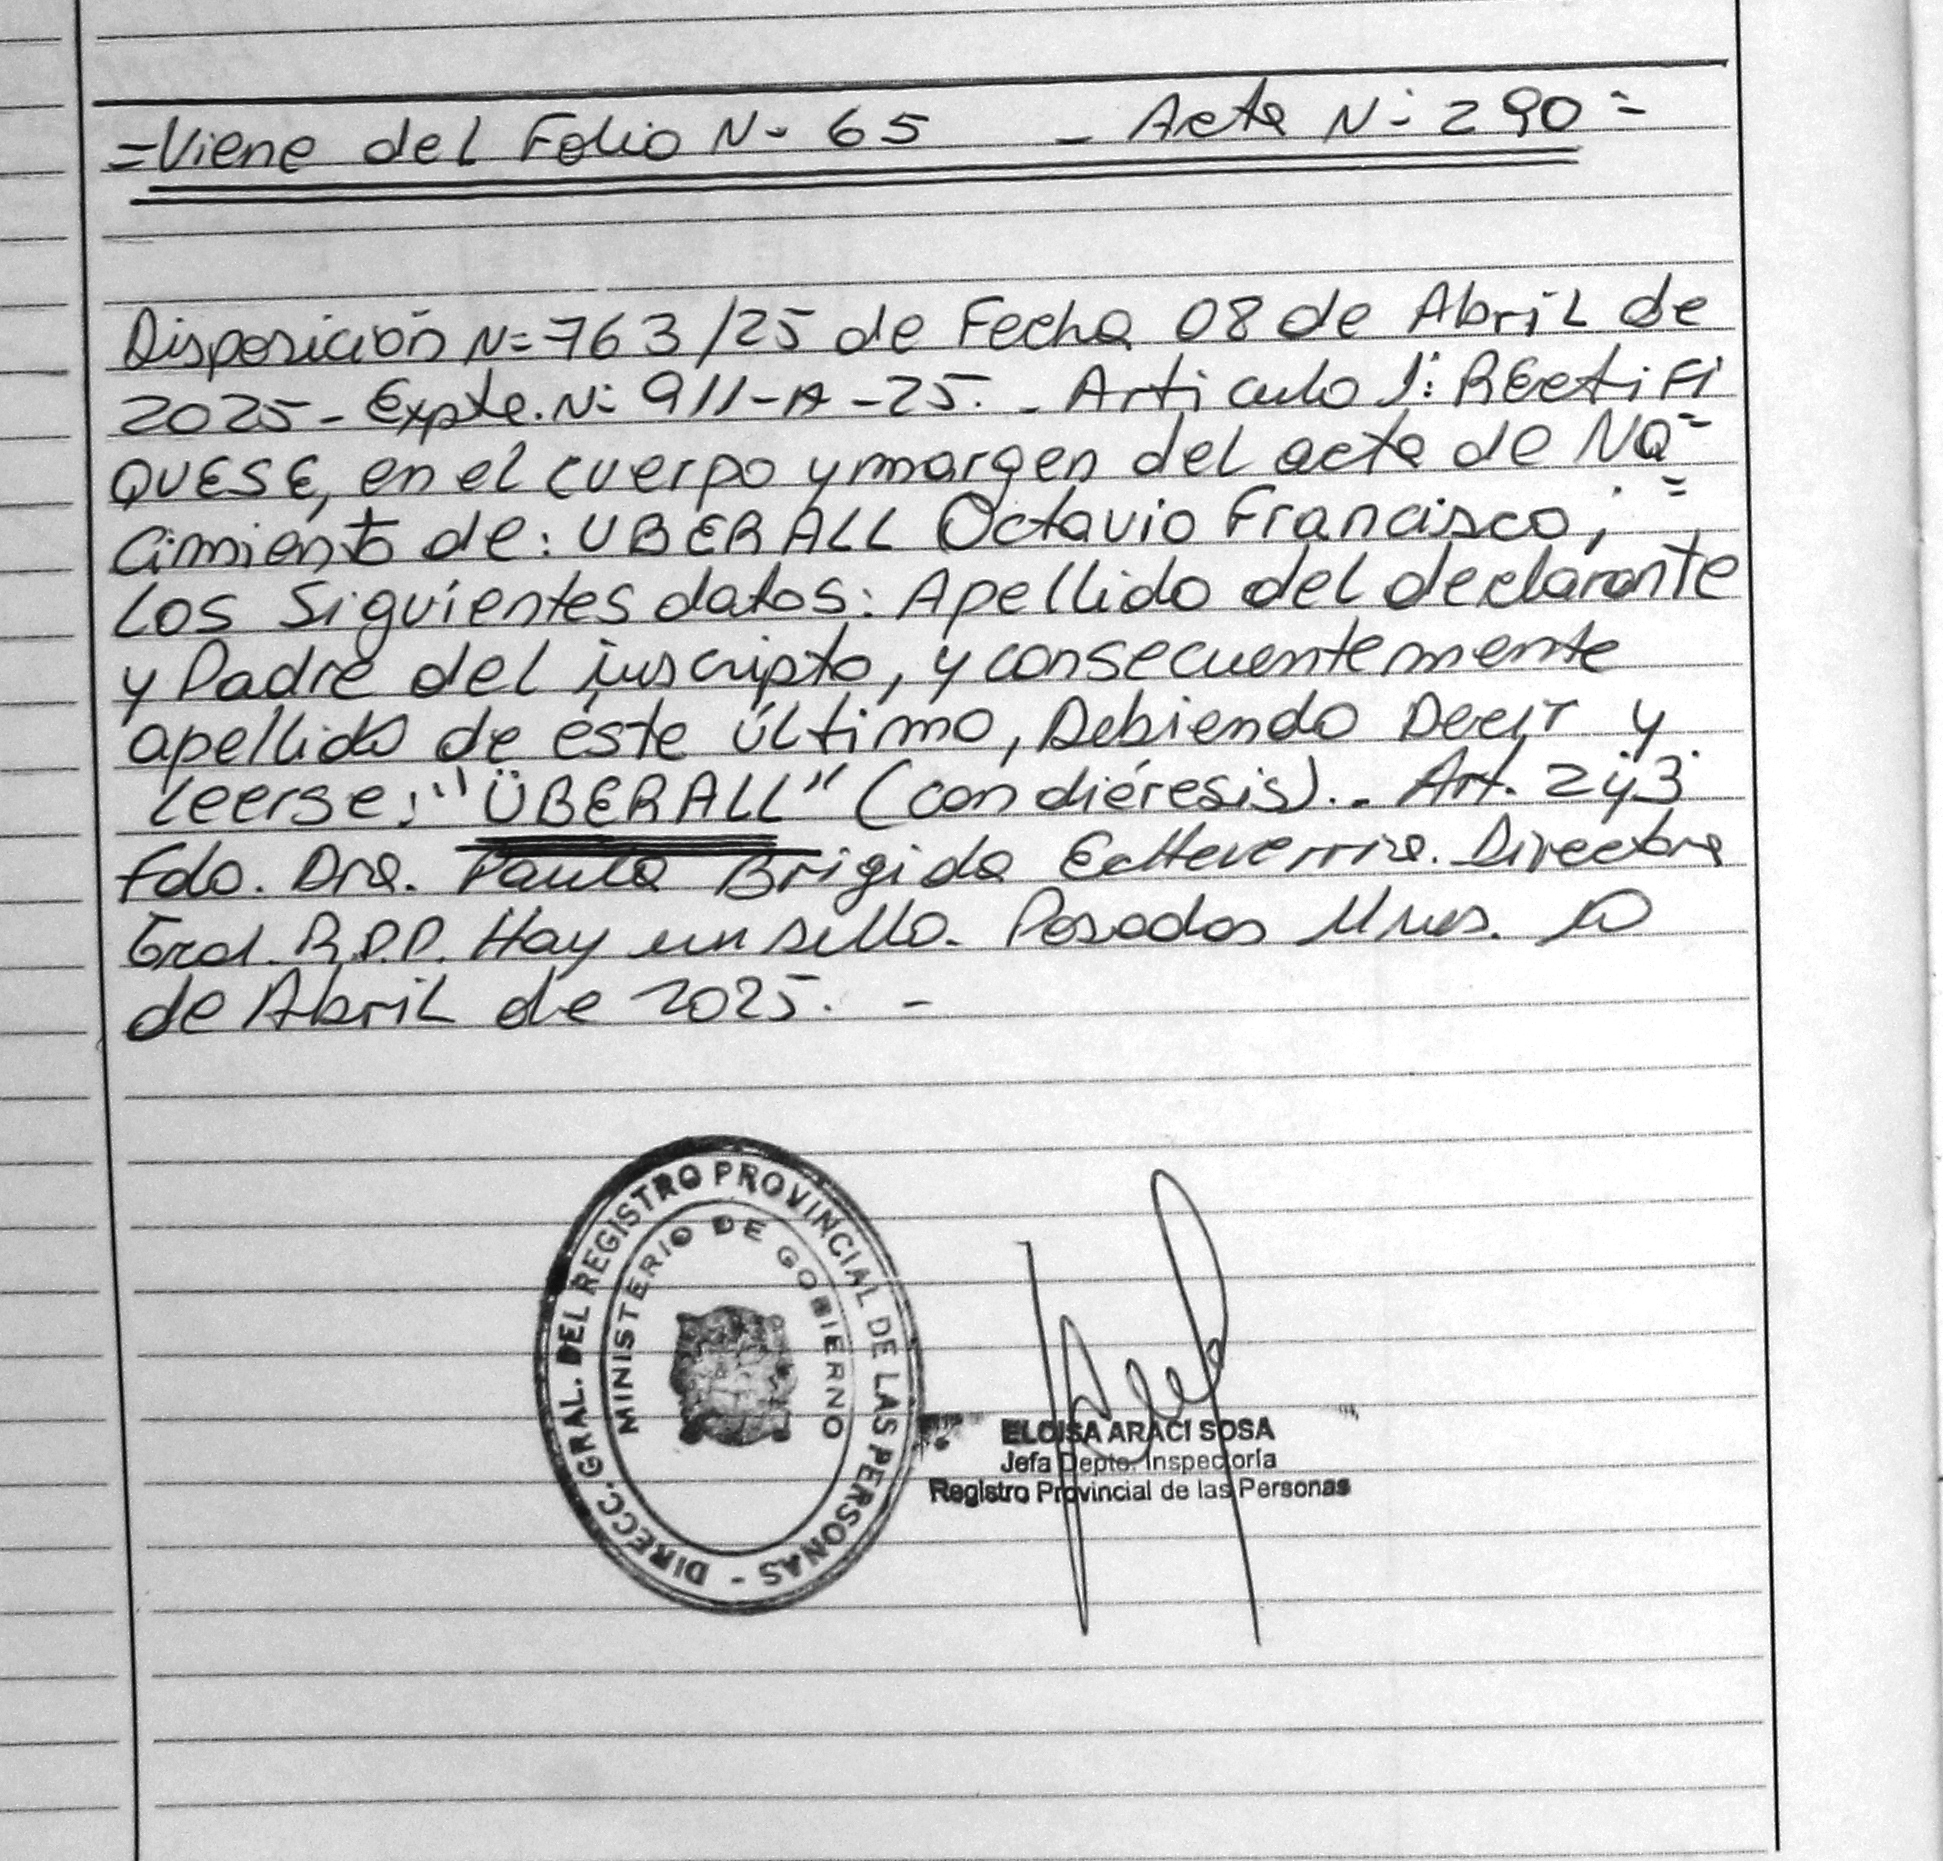 =Viene del Folio N- 65 - Acta N- 290=
Disposición N=763/25 de Fecha 08 de Abril de
2025- Expte. N- 911-A-25. - Articulo 1: REctiFi
QUESE, en el cuerpo y margen del acta de Na=
cimiento de: UBERALL Octavio Francisco; =
los Siguientes datos: Apellido del declarante
y Padre del inscripto, y consecuentemente
apellido de éste último, Debiendo Decir y
leerse: "ÜBERALL" (con diéresis).- Art. 2 y 3
Fdo. Dra. Paula Brigida Echeverria. Directora
Gral. R.P.P. Hay un sello. Posadas Mnes.
de Abril de 2025. -
DIRECC. GRAL. DEL REGISTRO PROVINCIAL DE LAS PERSONAS -
MINISTERIO DE GOBIERNO
ELOISA ARACI SOSA
Jefa Depto. Inspectoría
Registro Provincial de las Personas